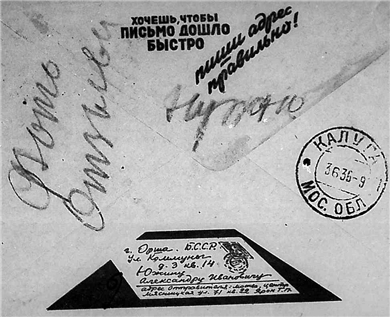 ХОЧЕШЬ, ЧТОБЫ
ПИСЬМО ДОШЛО
БЫСТРО
пиши адрес
правильно!
Фото
Отзывы
Нужно
КАЛУГА
3636-9
МОС. ОБЛ
г. Орша. Б.С.С.Р.
ул Коммуны
д. 3 кв. 14.
Южину
Александру Ивановичу
адрес отправителя:
Мясницкая ул. 71 кв. 22